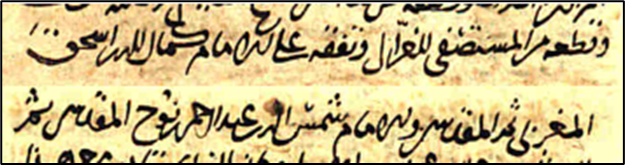 وقطعه من المستصفى للغزالي وتفقه على الامام كمال الدين اسحق
المغربي ثم المقدسي والامام شمس الدين عبد الرحمن بن نوح المقدسي ثم